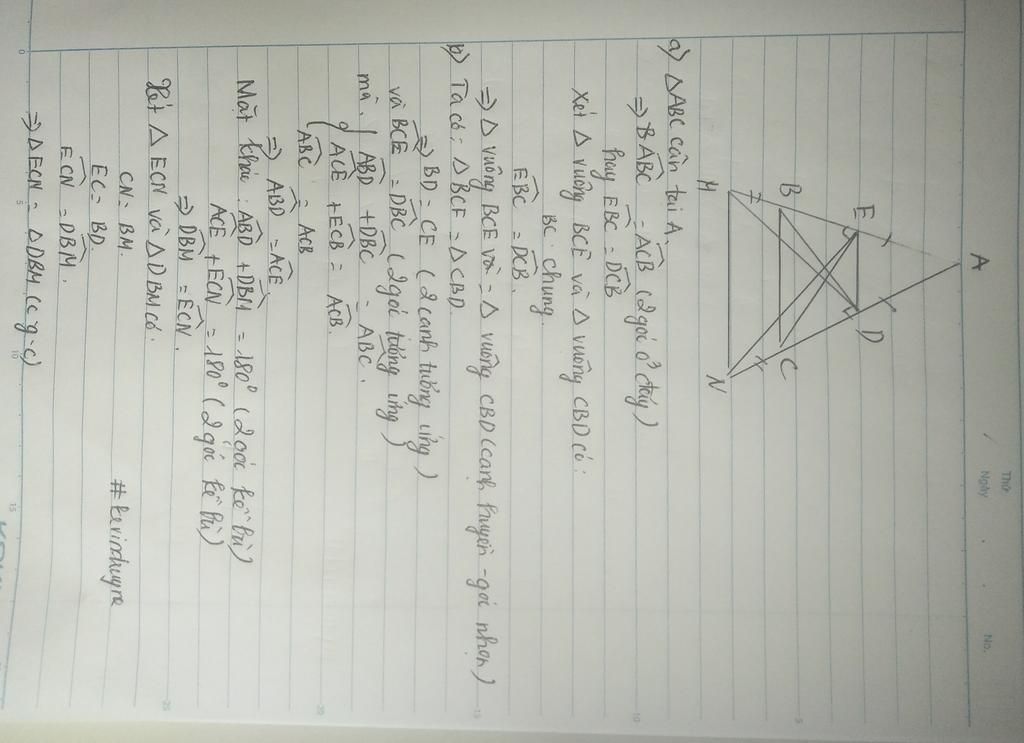 Thứ
Ngày
No.
A
E
D
B
C
M
N
a) △ABC cân tại A.
=> BABC = ACB (2 góc ở đáy)
hay EBC = DCB
Xét △ vuông BCE và △ vuông CBD có:
BC chung.
EBC = DCB.
=> △ vuông BCE và = △ vuông CBD (cạnh huyền - góc nhọn)
b) Ta có: △BCE = △CBD.
=> BD = CE (2 cạnh tương ứng)
và BCE = DBC (2 góc tương ứng)
mà ABD + DBC = ABC.
ACE + ECB = ACB.
ABC = ACB
=> ABD = ACE
Mặt khác: ABD + DBM = 180° (2 góc kề bù)
ACE + ECN = 180° (2 góc kề bù)
=> DBM = ECN.
Xét △ ECN và △ DBM có.
CN = BM.
EC = BD.
ECN = DBM.
=> △ECN = △DBM (c.g.c)
0
5
10
15
20
25
5
10
15